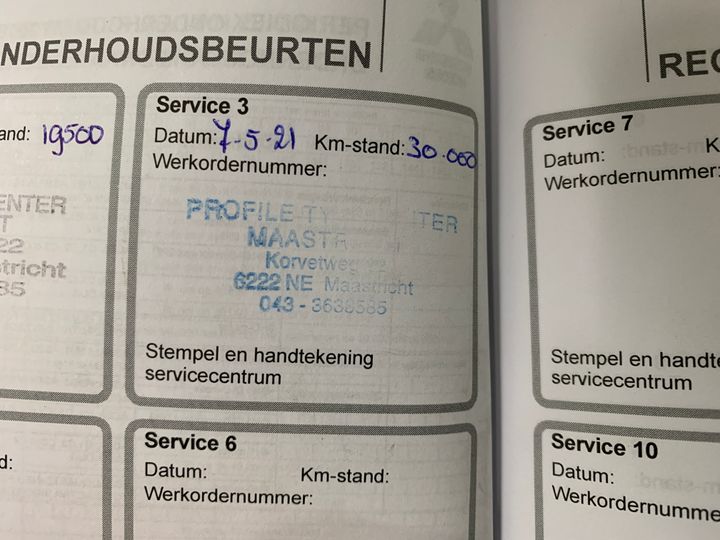 NDERHOUDSBEURTEN
and: 19500
ENTER
T
22
tricht
35
Service 3
Datum: 7-5-21 Km-stand: 30.000
Werkordernummer:
PROFILE TY ITER
MAASTR
Korvetweg 22
6222 NE Maastricht
043 - 3638585
Stempel en handtekening
servicecentrum
d:
Service 6
Datum: Km-stand:
Werkordernummer:
REC
Service 7
Datum: K
Werkordernummer:
Stempel en handte
servicecentrum
Service 10
Datum:
Werkordernumme